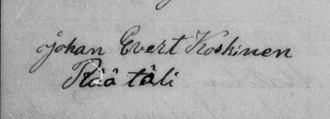 Johan Evert Koskinen
Räätäli